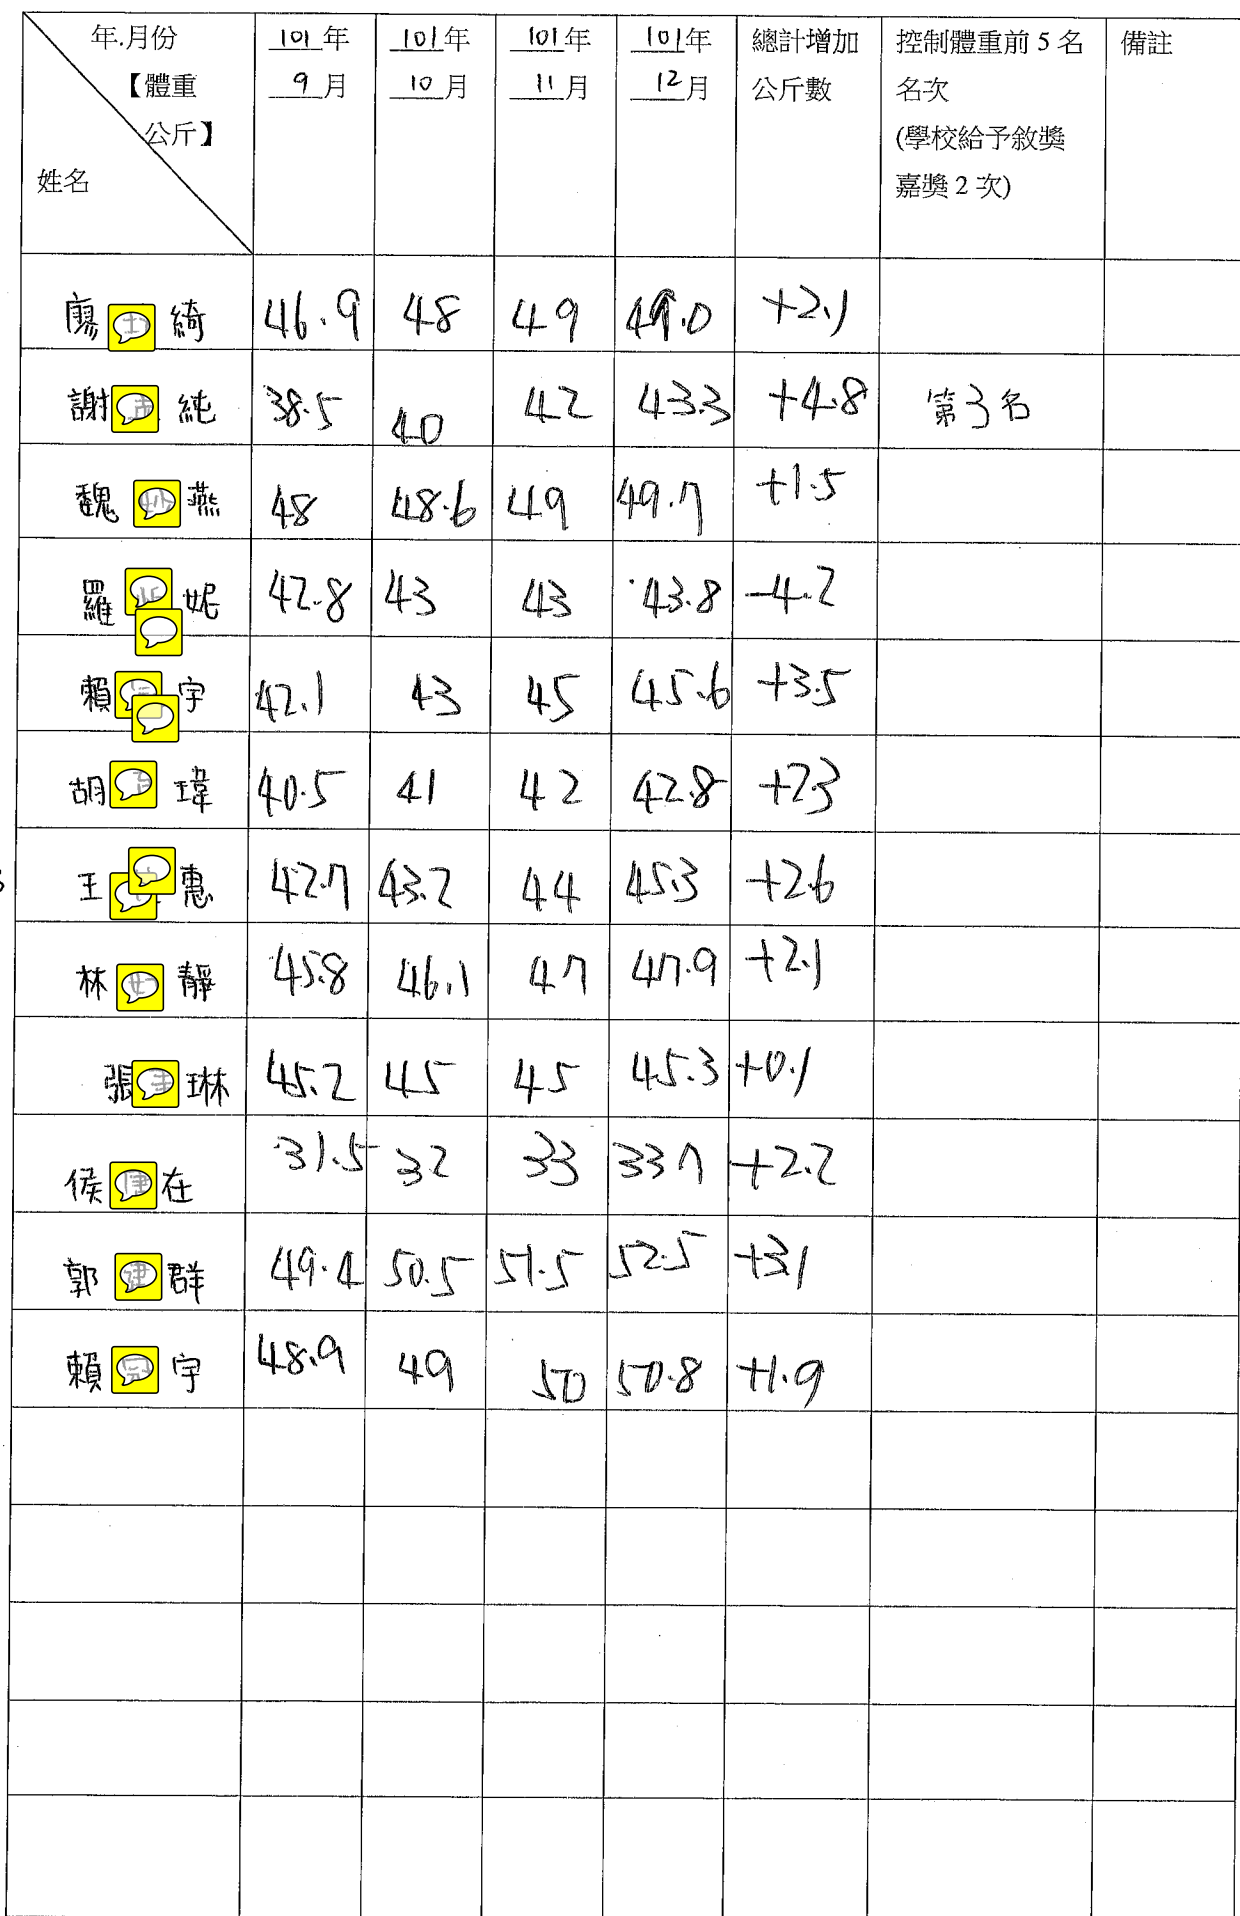 年.月份
【體重
公斤】
姓名
101年
9月
101年
10月
101年
11月
101年
12月
總計增加
公斤數
控制體重前5名
名次
(學校給予敘獎
嘉獎2次)
備註
廖 綺 46.9 48 49 49.0 +2.1
謝 純 38.5 40 42 43.3 +4.8 第3名
魏 燕 48 48.6 49 49.7 +1.5
羅 妮 42.8 43 43 43.8 -4.2
賴 宇 42.1 43 45 45.6 +3.5
胡 瑋 40.5 41 42 42.8 +2.3
王 惠 42.7 43.2 44 45.3 +2.6
林 靜 45.8 46.1 47 47.9 +2.1
張 琳 45.2 45 45 45.3 +0.1
侯 在 31.5 32 33 33.7 +2.2
郭 群 49.4 50.5 51.5 52.5 +3.1
賴 宇 48.9 49 50 50.8 +1.9